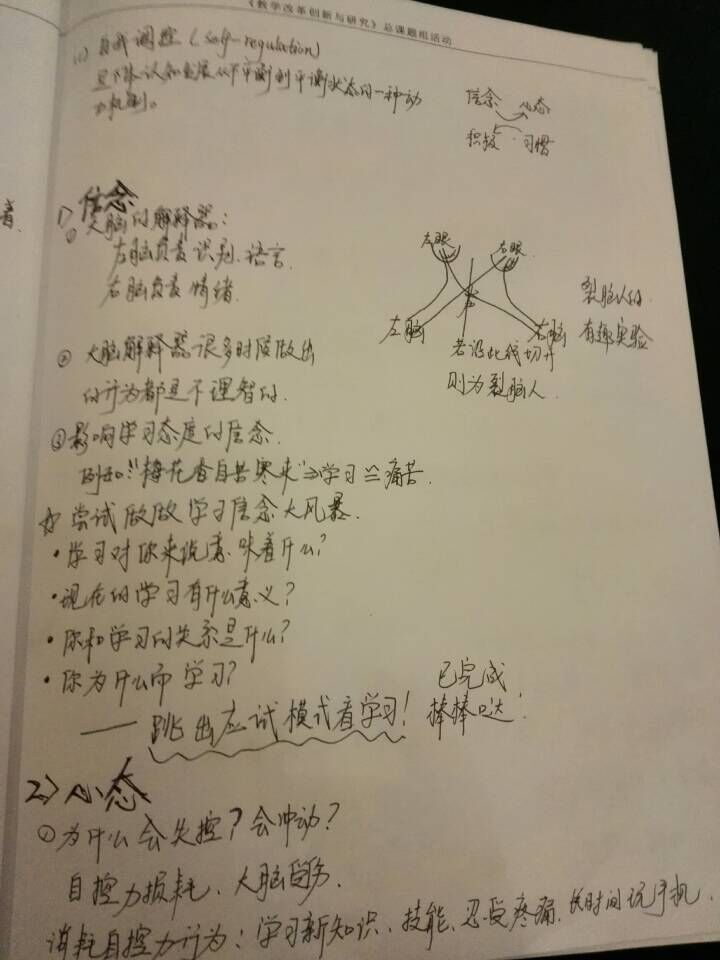 《教学改革创新与研究》总课题组活动
(1) 自我调控 (self-regulation)
是个体认知发展从不平衡到平衡状态的一种动
力机制。
信念 心态
积极 · 习惯
着.
1) 信念
① 大脑的解释器:
左脑负责识别、语言.
右脑负责情绪.
左眼 右眼
左脑 右脑
若沿此线切开
则为裂脑人.
裂脑人的
有趣实验
② 大脑解释器很多时候做出
的行为都是不理智的.
③影响学习态度的信念.
例如:"梅花香自苦寒来"⇒学习=痛苦.
尝试做做学习信念大风暴.
·学习对你来说意味着什么?
·现在的学习有什么意义?
·你和学习的关系是什么?
·你为什么而学习?
—— 跳出应试模式看学习!
已完成
棒棒哒!
2) 心态
①为什么会失控?会冲动?
自控力损耗、大脑
消耗自控力行为:学习新知识、技能、忍受疼痛、长时间玩手机.